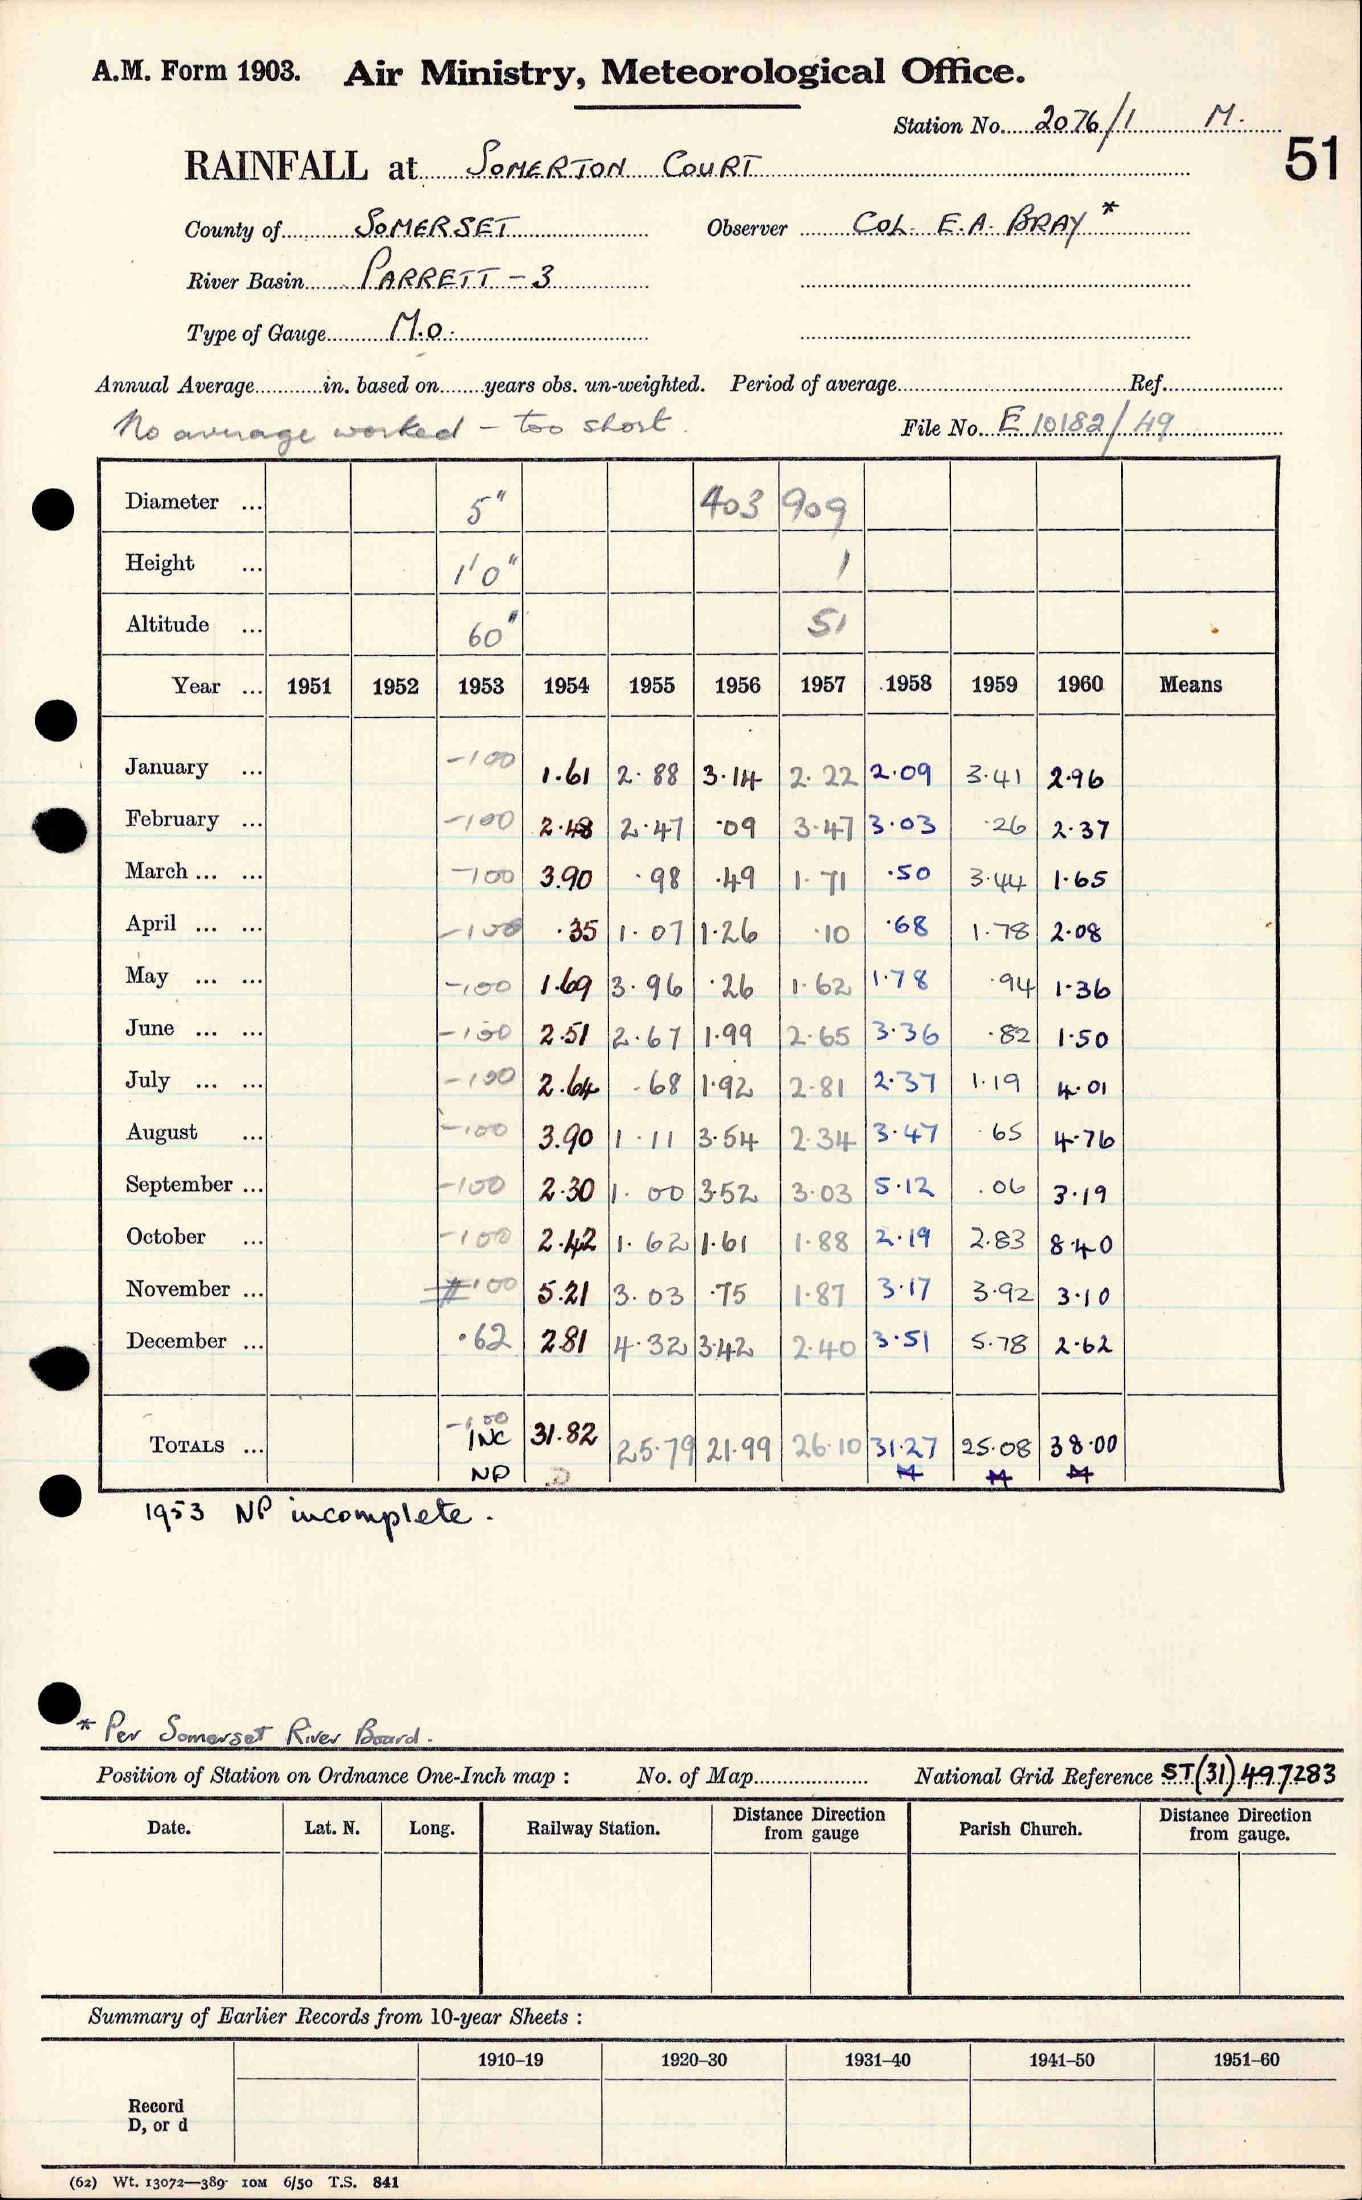 A.M. Form 1903. Air Ministry, Meteorological Office.
Station No. 2076/1 M.
51
RAINFALL at SOMERTON COURT
County of SOMERSET Observer COL. E.A. BRAY *
River Basin PARRETT - 3
Type of Gauge M.O.
Annual Average in. based on years obs. un-weighted. Period of average Ref.
No average worked - too short. File No. E 10182/49
Diameter ... 5" 403 909
Height ... 1'0" 1
Altitude ... 60" 51
Year ... 1951 1952 1953 1954 1955 1956 1957 1958 1959 1960 Means
January ... -100 1.61 2.88 3.14 2.22 2.09 3.41 2.96
February ... -100 2.48 2.47 .09 3.47 3.03 .26 2.37
March ... ... -100 3.90 .98 .49 1.71 .50 3.44 1.65
April ... ... -100 .35 1.07 1.26 .10 .68 1.78 2.08
May ... ... -100 1.69 3.96 .26 1.62 1.78 .94 1.36
June ... ... -100 2.51 2.67 1.99 2.65 3.36 .82 1.50
July ... ... -100 2.64 .68 1.92 2.81 2.37 1.19 4.01
August ... -100 3.90 1.11 3.54 2.34 3.47 .65 4.76
September ... -100 2.30 1.00 3.52 3.03 5.12 .06 3.19
October ... -100 2.42 1.62 1.61 1.88 2.19 2.83 8.40
November ... 100 5.21 3.03 .75 1.87 3.17 3.92 3.10
December ... .62 2.81 4.32 3.42 2.40 3.51 5.78 2.62
TOTALS ... -100 INC NP 31.82 25.79 21.99 26.10 31.27 M 25.08 M 38.00 M
1953 NP incomplete.
* Per Somerset River Board.
Position of Station on Ordnance One-Inch map : No. of Map National Grid Reference ST(31)497283
Date. Lat. N. Long. Railway Station. Distance Direction from gauge Parish Church. Distance Direction from gauge.
Summary of Earlier Records from 10-year Sheets :
1910-19 1920-30 1931-40 1941-50 1951-60
Record
D, or d
(62) Wt. 13072—389 10M 6/50 T.S. 841